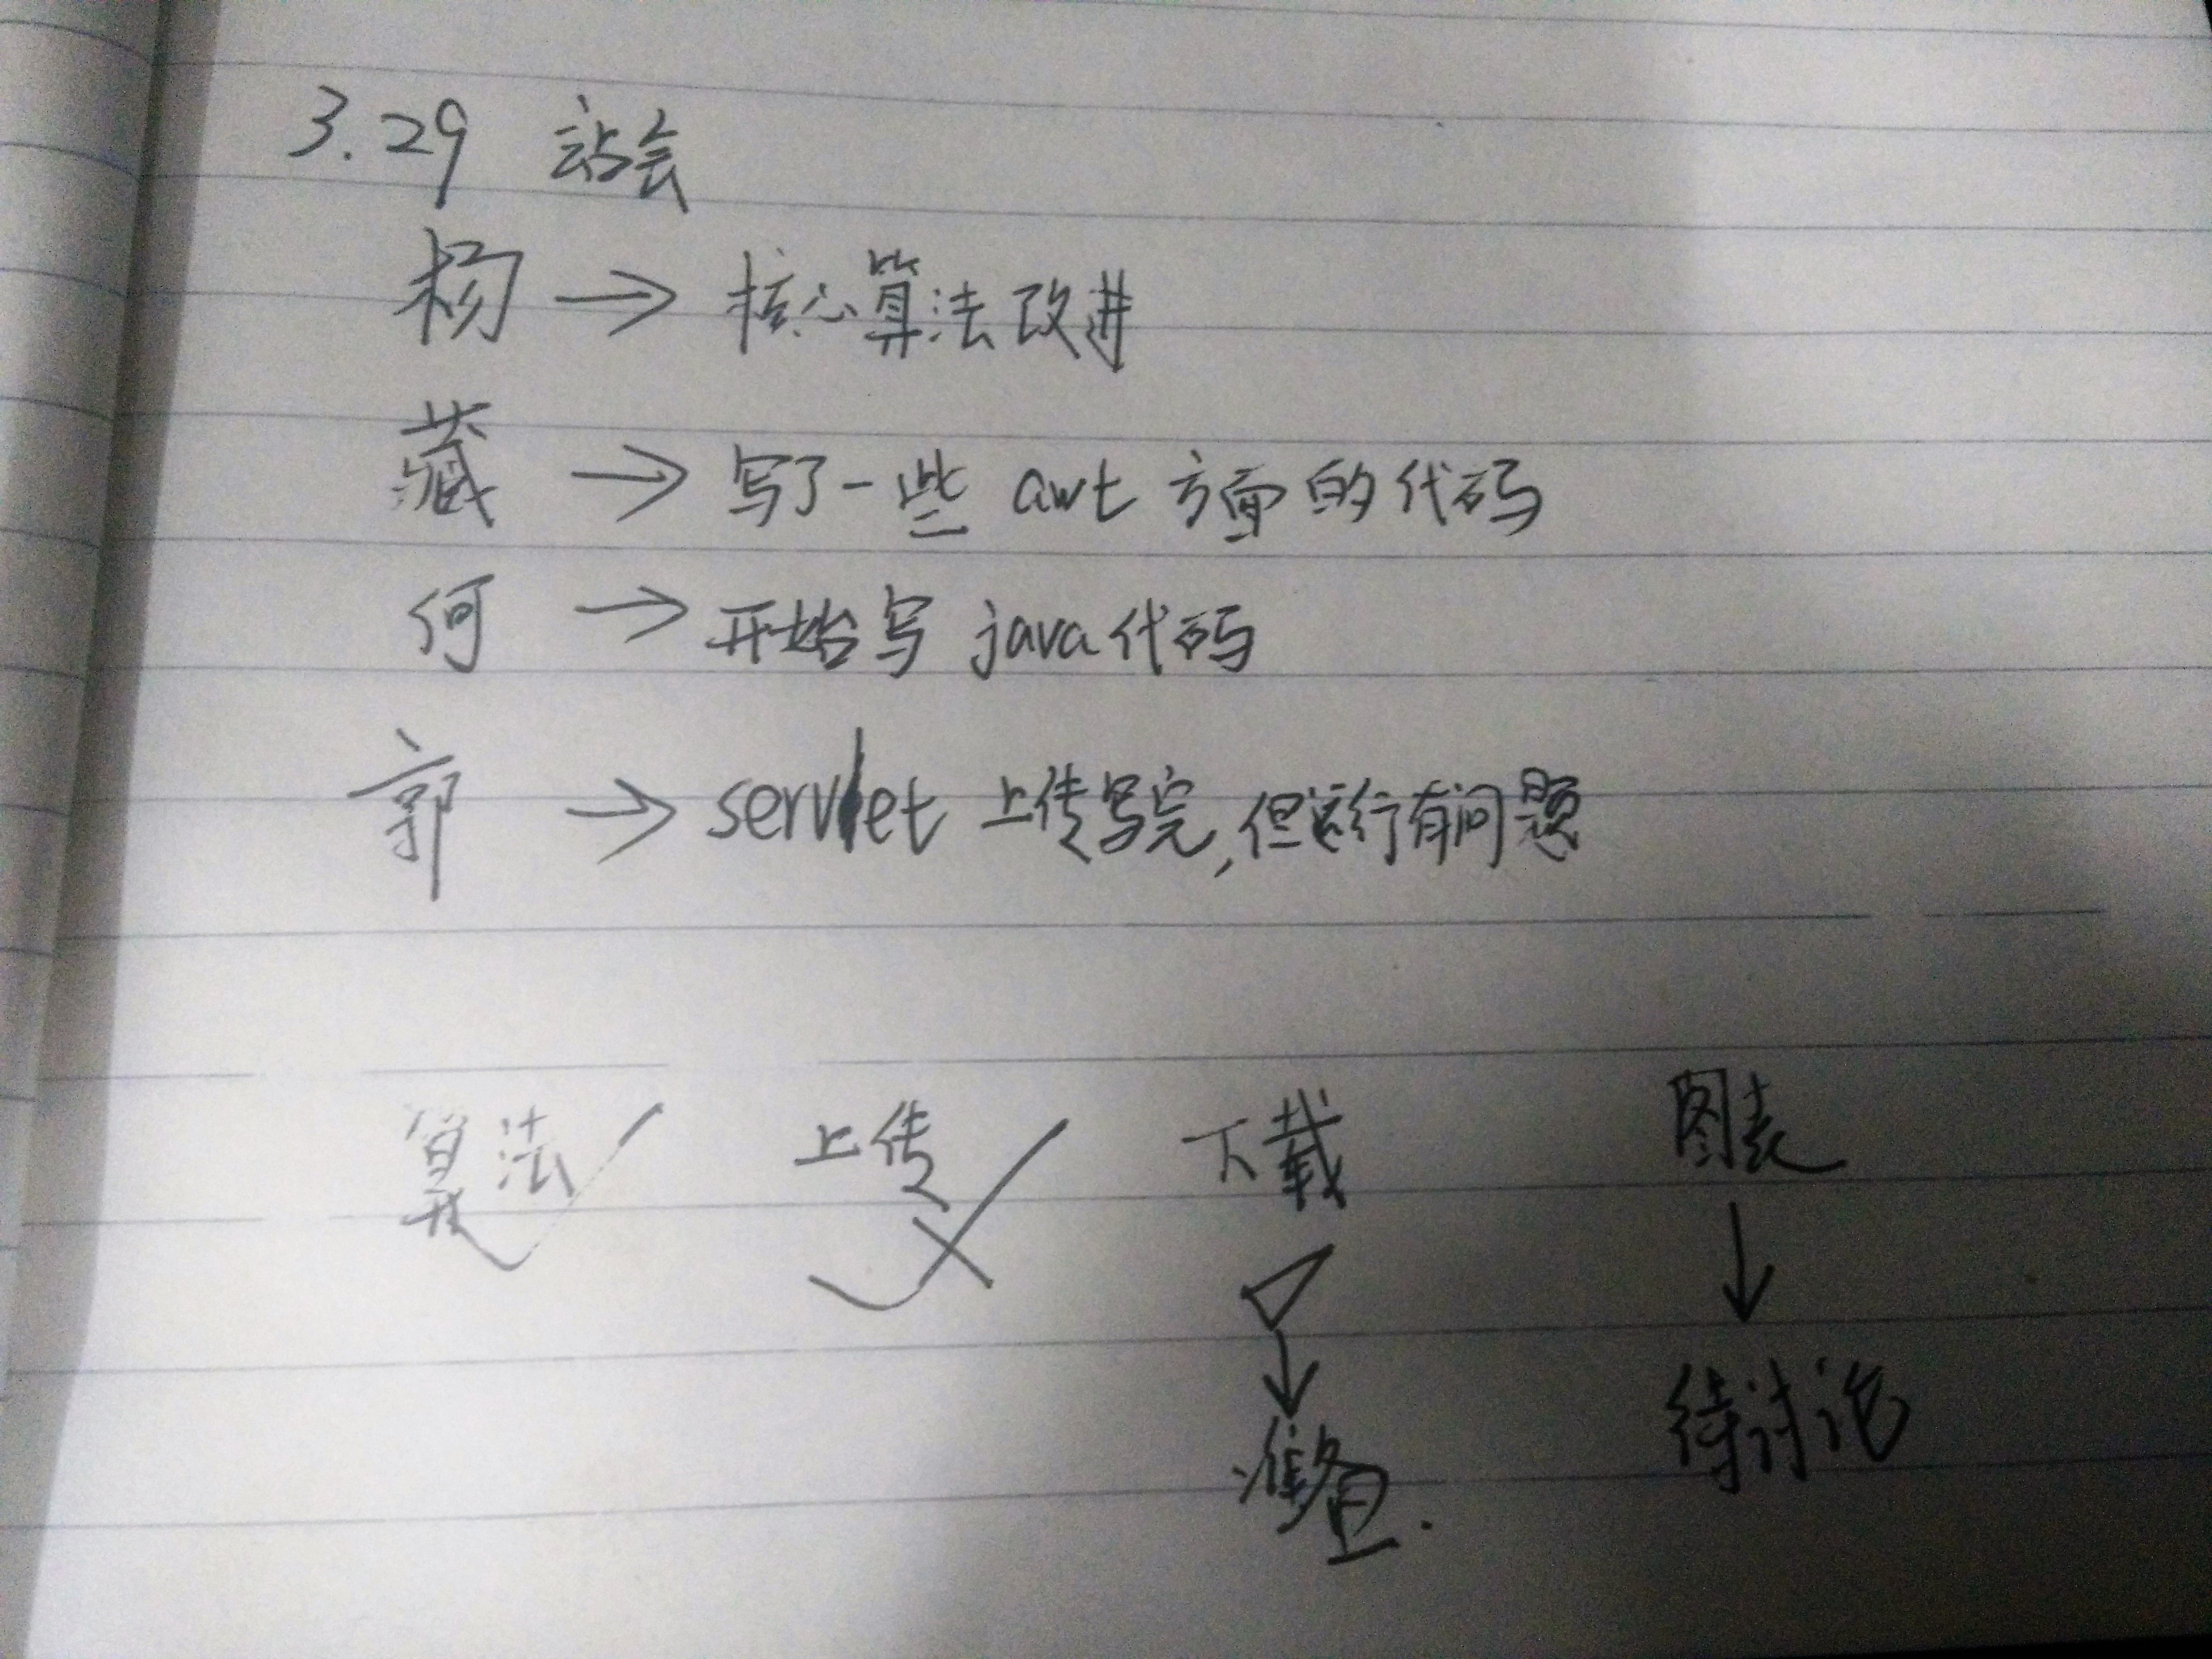 3.29 站会
杨 → 核心算法改进
藏 → 写了一些 awt 方面的代码
何 → 开始写 java代码
郭 → servlet 上传写完,但运行有问题
算法✓ 上传 下载 图表
↓ ↓
准备. 待讨论